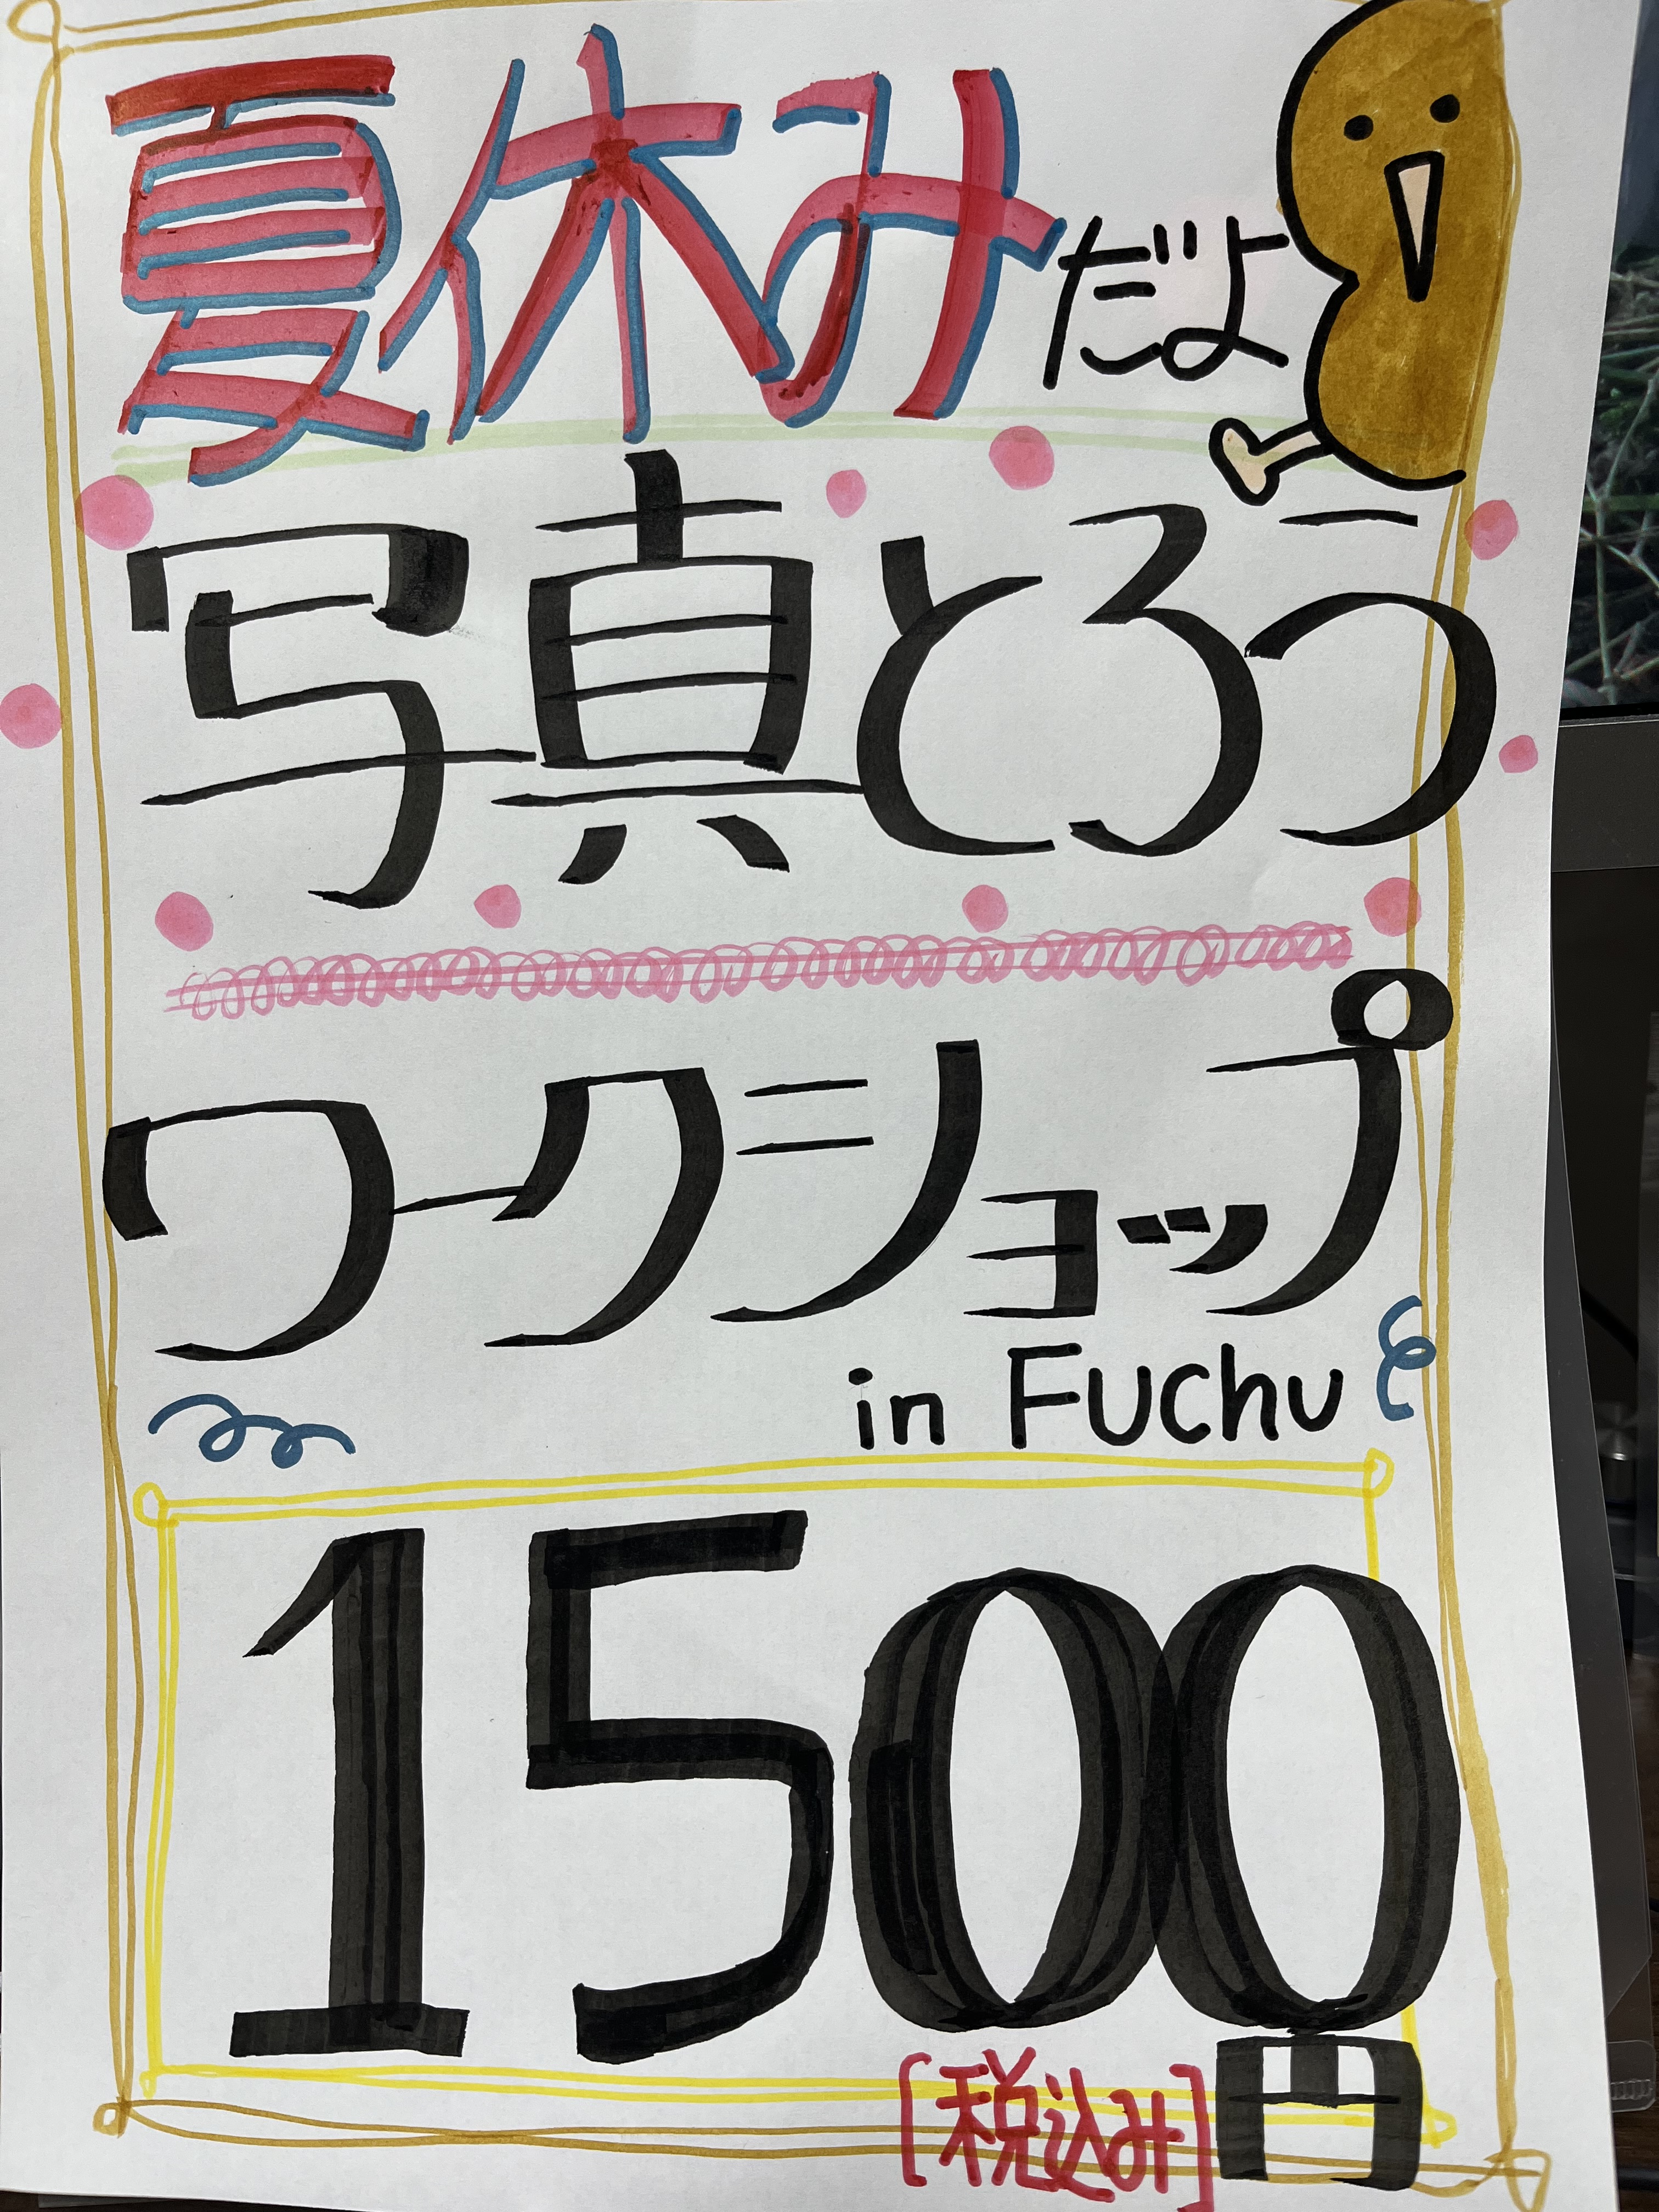 夏休みだよ
写真とろう
ワークショップ
in Fuchu
1500円
[税込み]